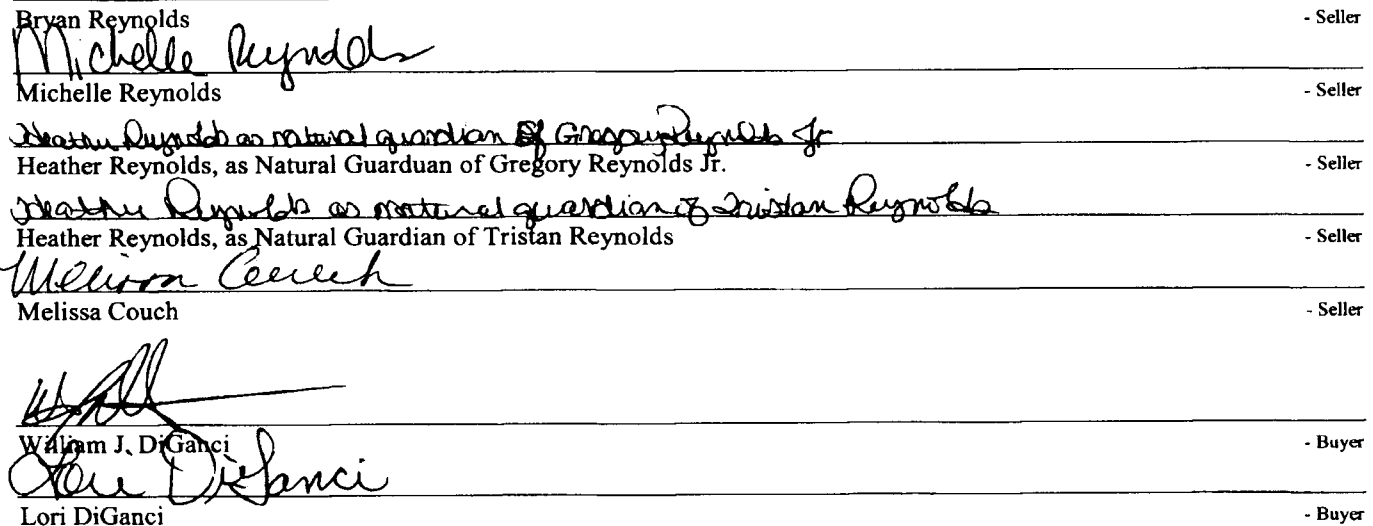 Bryan Reynolds - Seller
Michelle Reynolds
Michelle Reynolds - Seller
Heather Reynolds as natural guardian of Gregory Reynolds Jr
Heather Reynolds, as Natural Guarduan of Gregory Reynolds Jr. - Seller
Heather Reynolds as natural guardian of Tristan Reynolds
Heather Reynolds, as Natural Guardian of Tristan Reynolds - Seller
Melissa Couch
Melissa Couch - Seller
William J. DiGanci - Buyer
Lori DiGanci
Lori DiGanci - Buyer